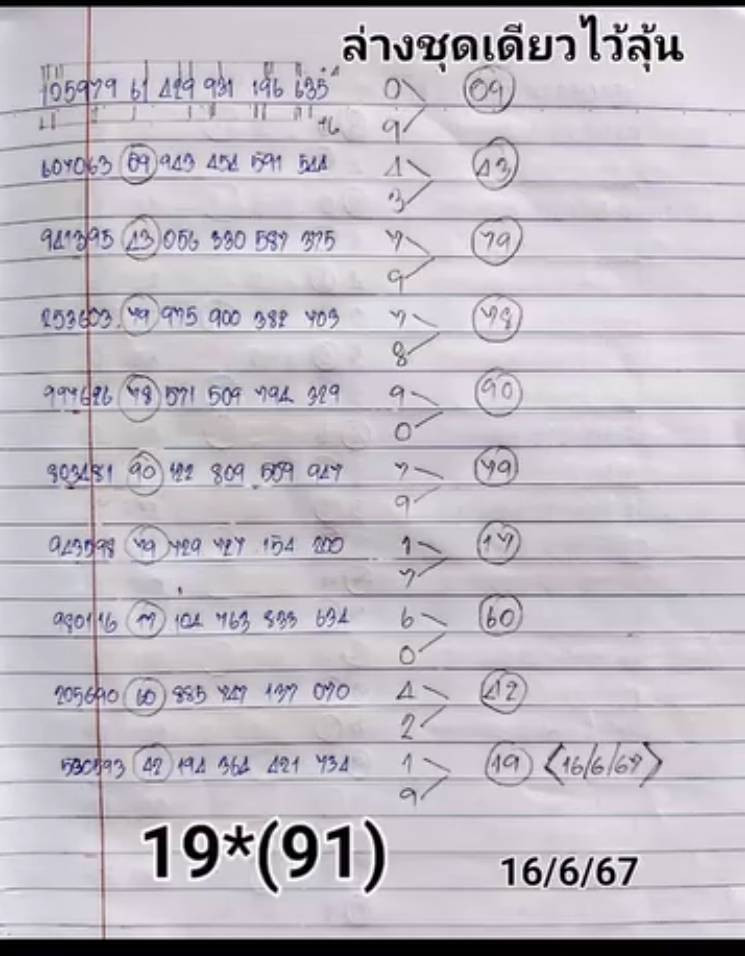 ล่างชุดเดียวไว้ลุ้น
105979 61 429 931 196 635 0 09
9
607063 09 943 454 591 544 4 43
3
941395 43 056 330 587 375 7 79
9
253603 79 975 900 382 703 7 78
8
997626 78 571 509 794 329 9 90
0
803481 90 122 809 509 947 7 79
9
943598 79 729 727 154 200 1 17
7
980116 17 104 763 833 634 6 60
0
205690 60 885 747 137 070 4 42
2
530593 42 194 364 421 734 1 19 <16/6/67>
9
19*(91)
16/6/67